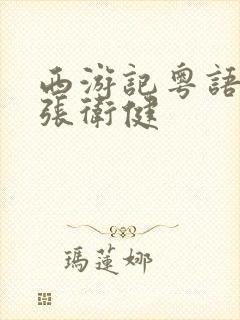 西游記粵語
張衛健
瑪蓮娜